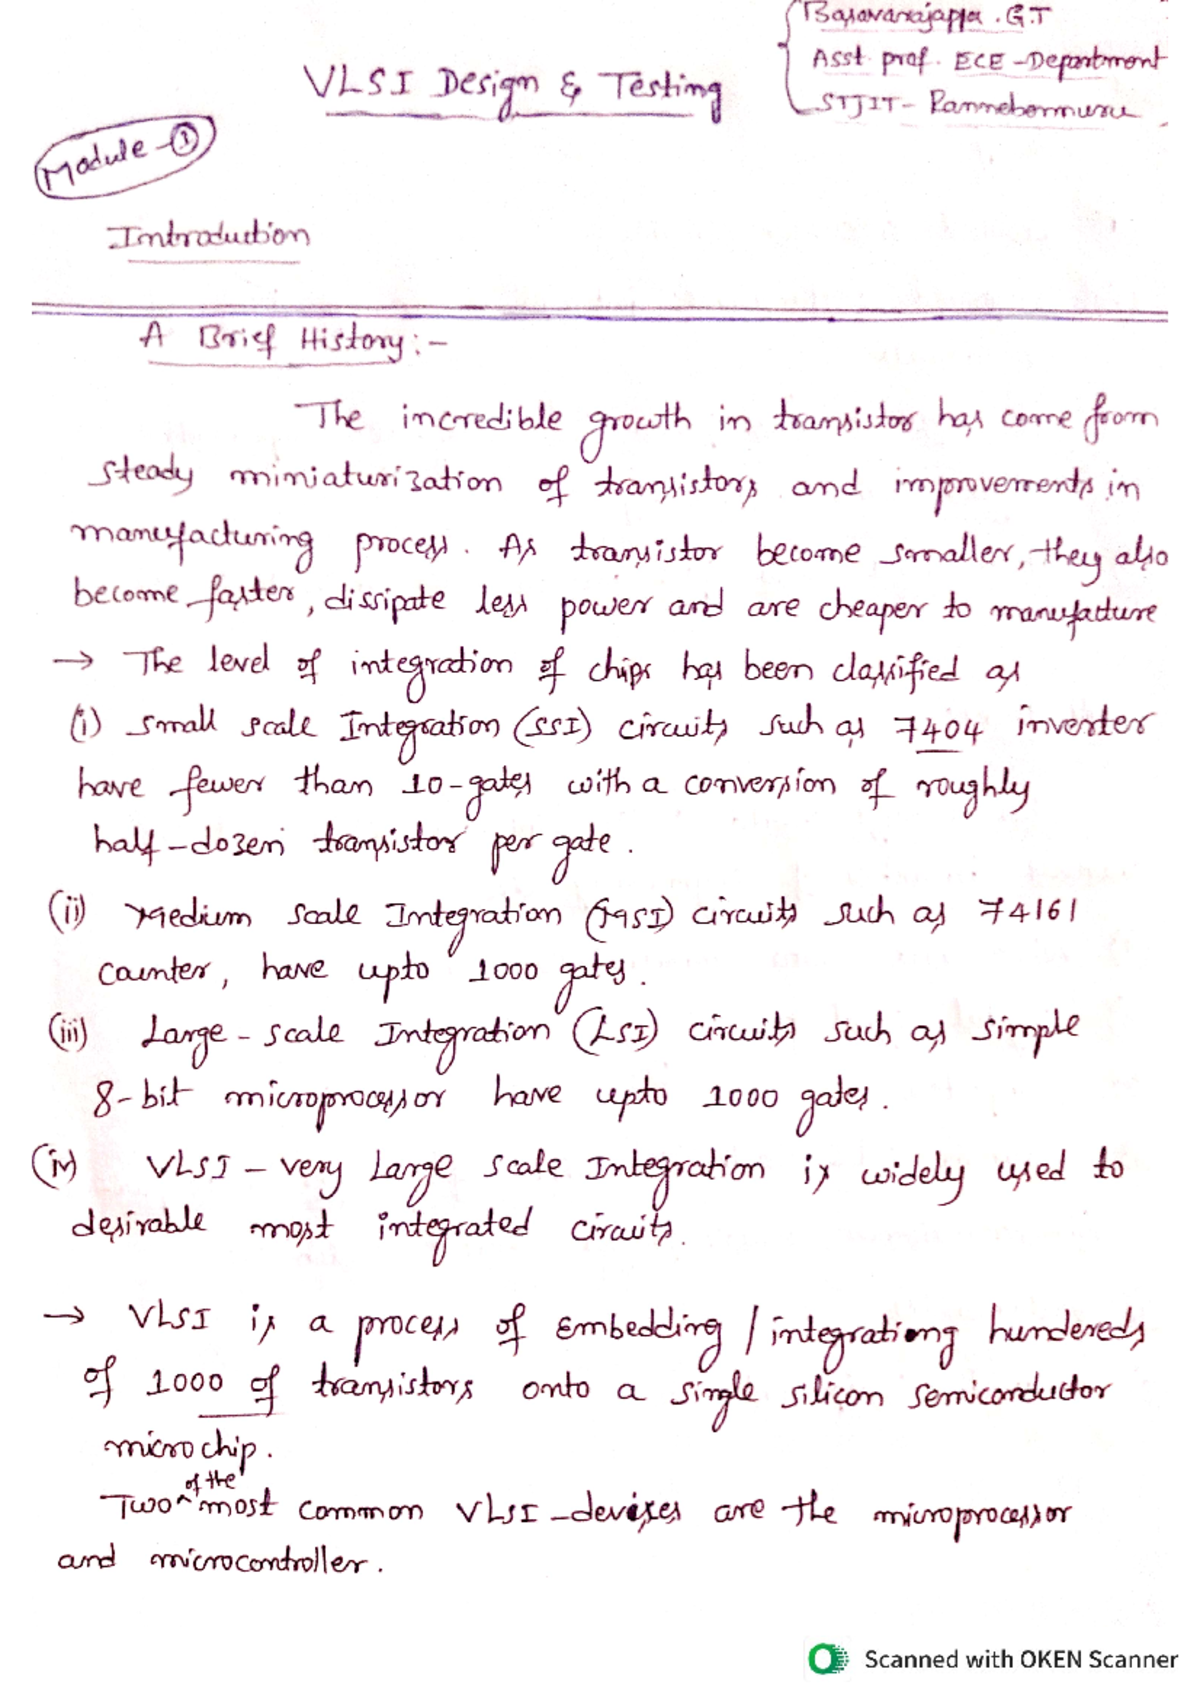 Basavarajappa .G.T
Asst prof. ECE -Department
STJIT- Rannebennuru
VLSI Design & Testing
Module -①
Introduction
A Brief History:-
The incredible growth in transistor has come from
steady miniaturization of transistors and improvements in
manufacturing process. As transistor become smaller, they also
become faster, dissipate less power and are cheaper to manufacture
→ The level of integration of chips has been classified as
(i) small scale Integration (SSI) circuits such as 7404 inverter
have fewer than 10-gates with a conversion of roughly
half-dozen transistor per gate.
(ii) Medium scale Integration (MSI) circuits such as 74161
counter, have upto 1000 gates.
(iii) Large-scale Integration (LSI) circuits such as simple
8-bit microprocessor have upto 1000 gates.
(iv) VLSI - very Large scale Integration is widely used to
desirable most integrated circuits.
→ VLSI is a process of Embedding / integrationg hundereds
of 1000 of transistors onto a single silicon semiconductor
microchip.
Two ^ of the most common VLSI -devices are the microprocessor
and microcontroller.
Scanned with OKEN Scanner